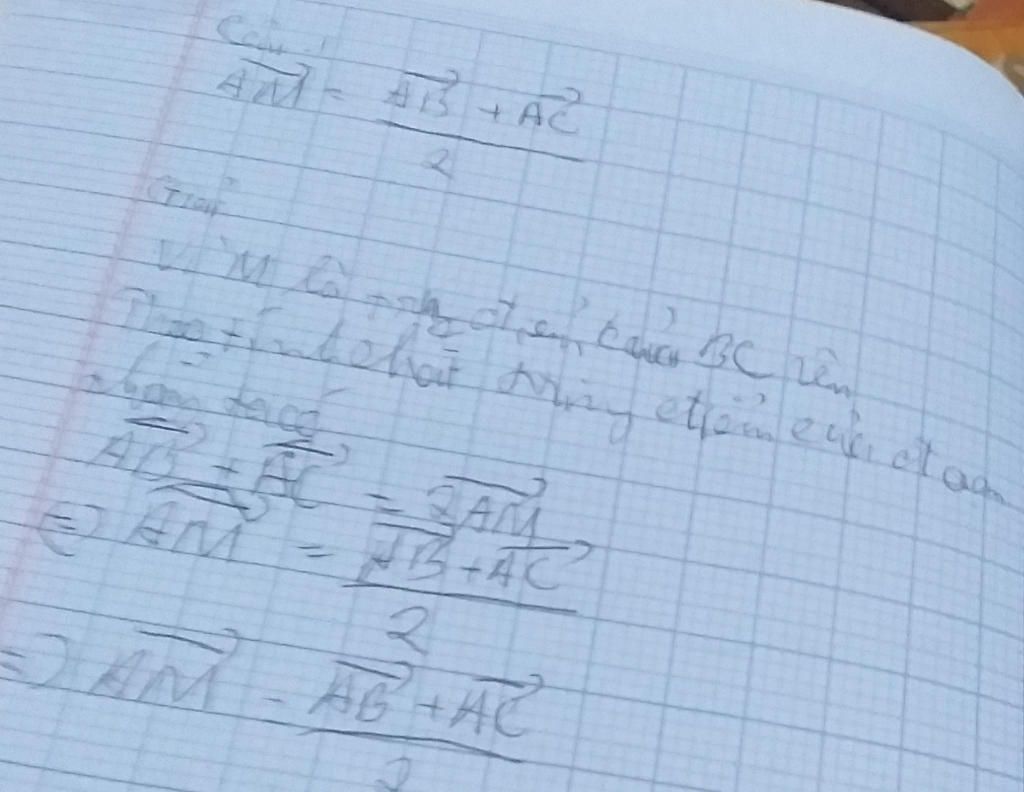 Câu 1
$\overrightarrow{AM} = \frac{\overrightarrow{AB} + \overrightarrow{AC}}{2}$
Giải
Vì M là trung điểm của BC nên
Theo tính chất trung điểm của đoạn
ta có
$\overrightarrow{AB} + \overrightarrow{AC} = 2\overrightarrow{AM}$
$\Leftrightarrow \overrightarrow{AM} = \frac{\overrightarrow{AB} + \overrightarrow{AC}}{2}$
$\Rightarrow \overrightarrow{AM} = \frac{\overrightarrow{AB} + \overrightarrow{AC}}{2}$